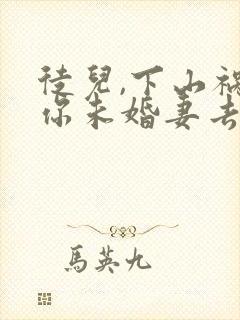 徒兒,下山禍
你未婚妻去
馬英九